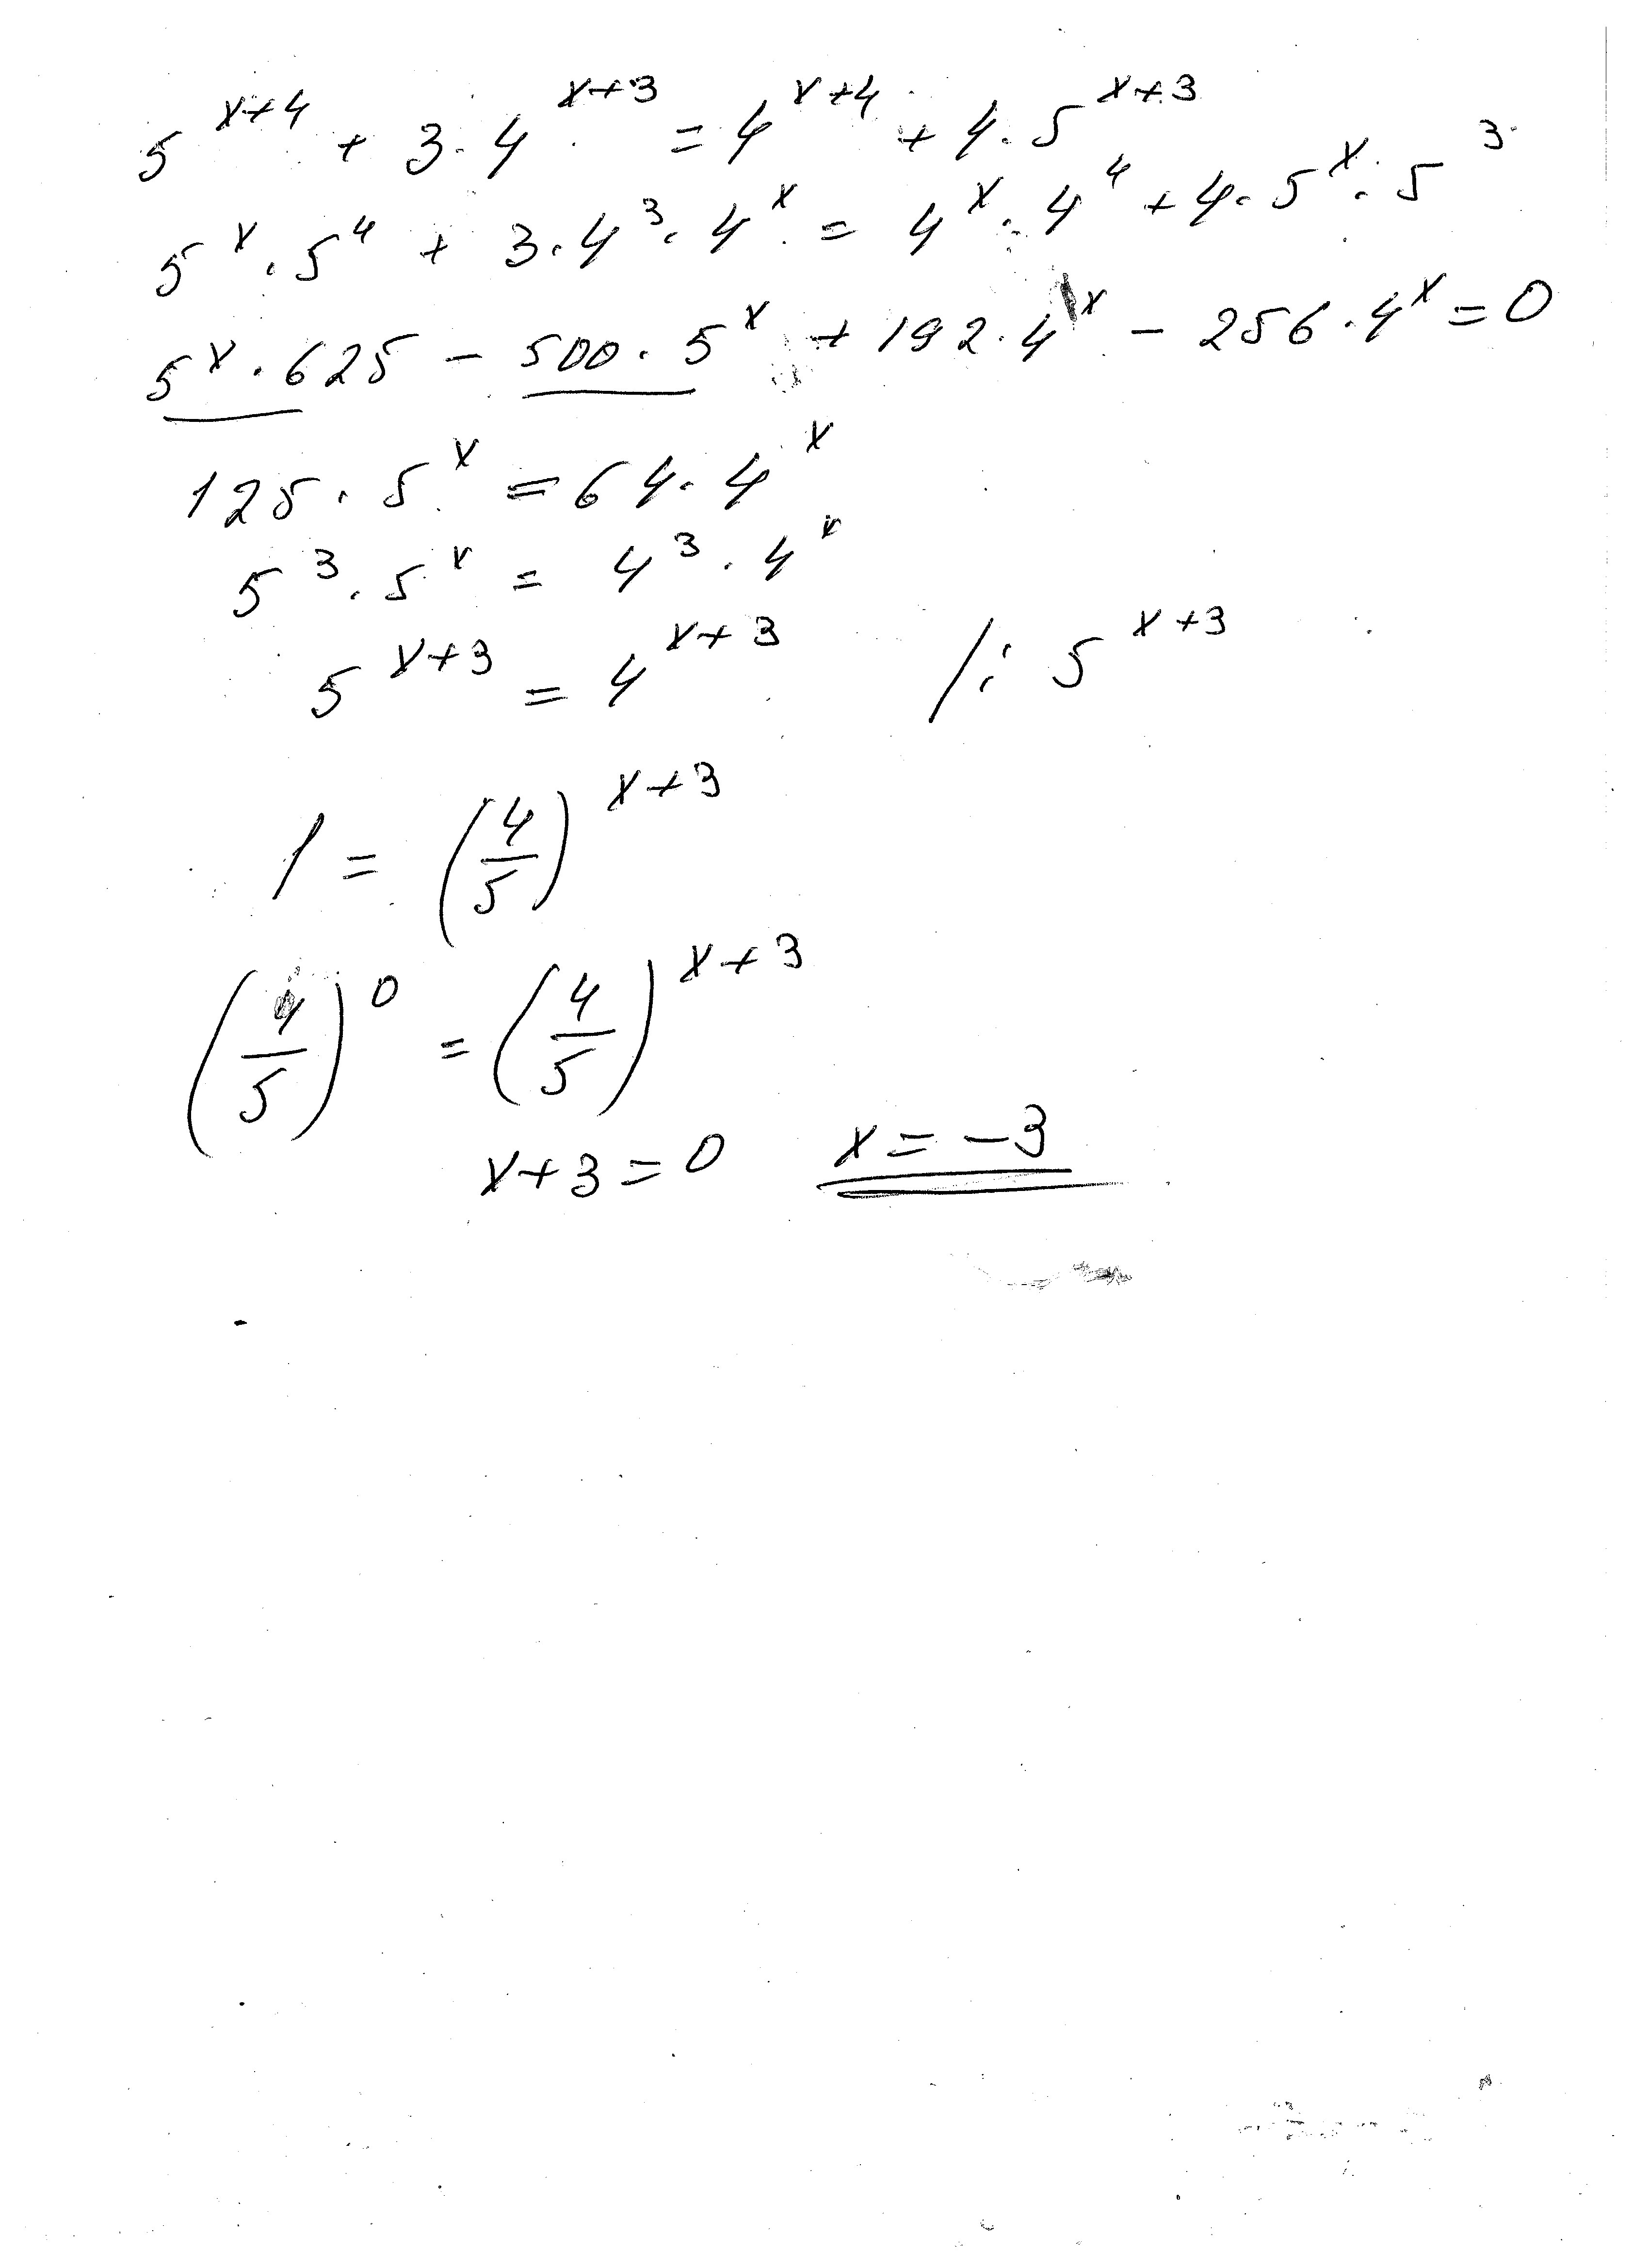 5^{x+4} + 3·4^{x+3} = 4^{x+4} + 4·5^{x+3}
5^x·5^4 + 3·4^3·4^x = 4^x·4^4 + 4·5^x·5^3
5^x·625 - 500·5^x + 192·4^x - 256·4^x = 0
125·5^x = 64·4^x
5^3·5^x = 4^3·4^x
5^{x+3} = 4^{x+3} /: 5^{x+3}
1 = (4/5)^{x+3}
(4/5)^0 = (4/5)^{x+3}
x+3=0 x=-3